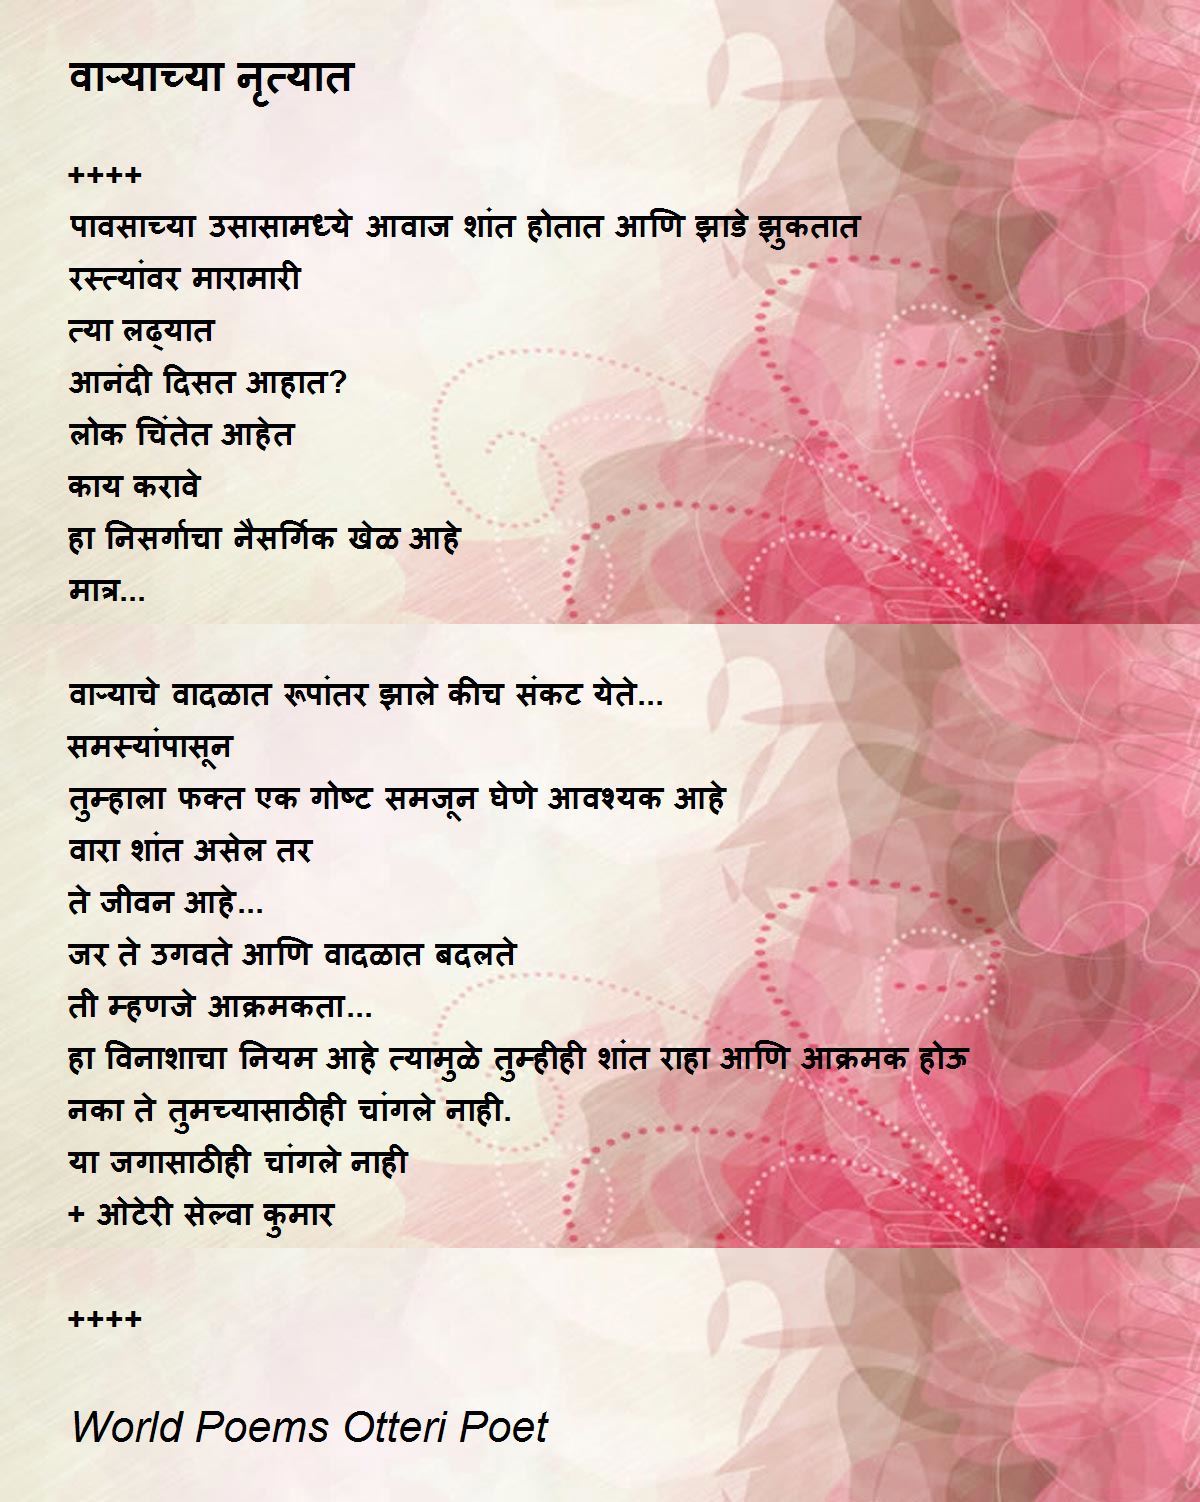 वाऱ्याच्या नृत्यात
++++
पावसाच्या उसासामध्ये आवाज शांत होतात आणि झाडे झुकतात
रस्त्यांवर मारामारी
त्या लढ्यात
आनंदी दिसत आहात?
लोक चिंतेत आहेत
काय करावे
हा निसर्गाचा नैसर्गिक खेळ आहे
मात्र...
वाऱ्याचे वादळात रूपांतर झाले कीच संकट येते...
समस्यांपासून
तुम्हाला फक्त एक गोष्ट समजून घेणे आवश्यक आहे
वारा शांत असेल तर
ते जीवन आहे...
जर ते उगवते आणि वादळात बदलते
ती म्हणजे आक्रमकता...
हा विनाशाचा नियम आहे त्यामुळे तुम्हीही शांत राहा आणि आक्रमक होऊ
नका ते तुमच्यासाठीही चांगले नाही.
या जगासाठीही चांगले नाही
+ ओटेरी सेल्वा कुमार
++++
World Poems Otteri Poet